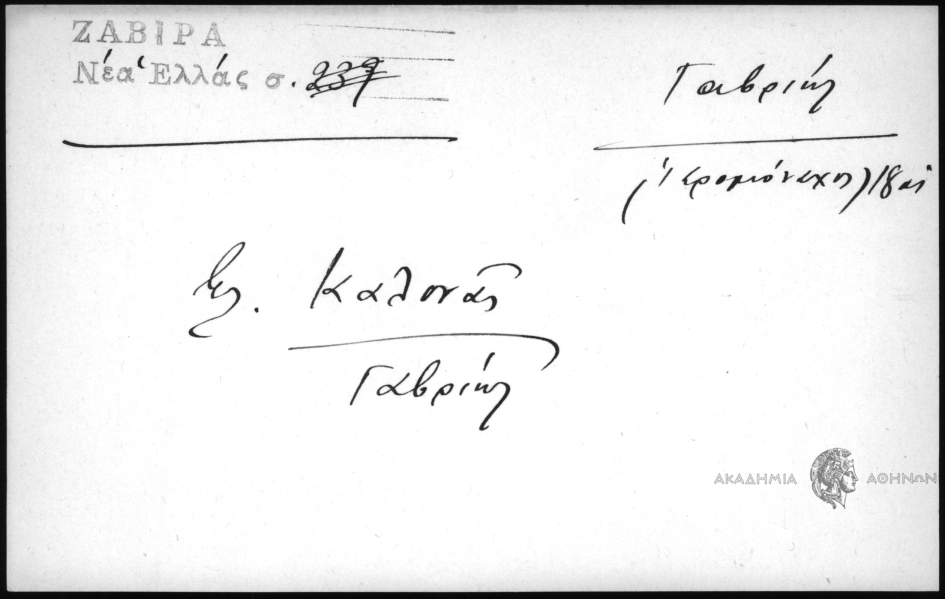 ΖΑΒΙΡΑ
Νέα Ἑλλάς σ. 237
Γαβριήλ
(ἱερομόναχος) 18 αἰ
Βλ. Καλονᾶς
Γαβριήλ
ΑΚΑΔΗΜΙΑ ΑΘΗΝΩΝ